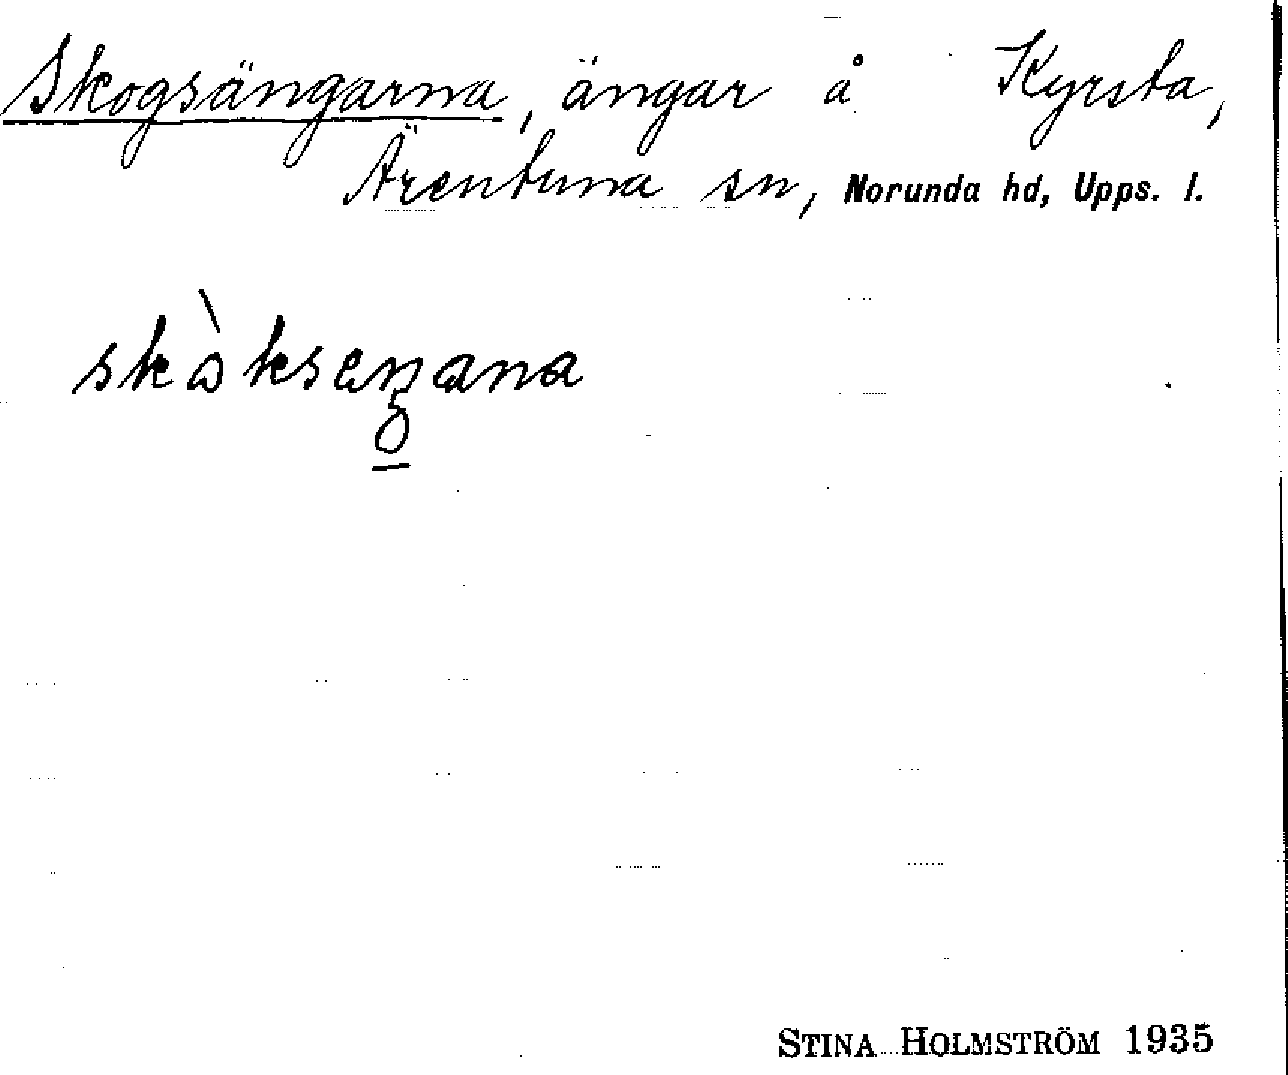 Skogsängarna, ängar å Kyrsta,
Ärentuna sn, Norunda hd, Upps. l.
skòkseŋana
STINA HOLMSTRÖM 1935